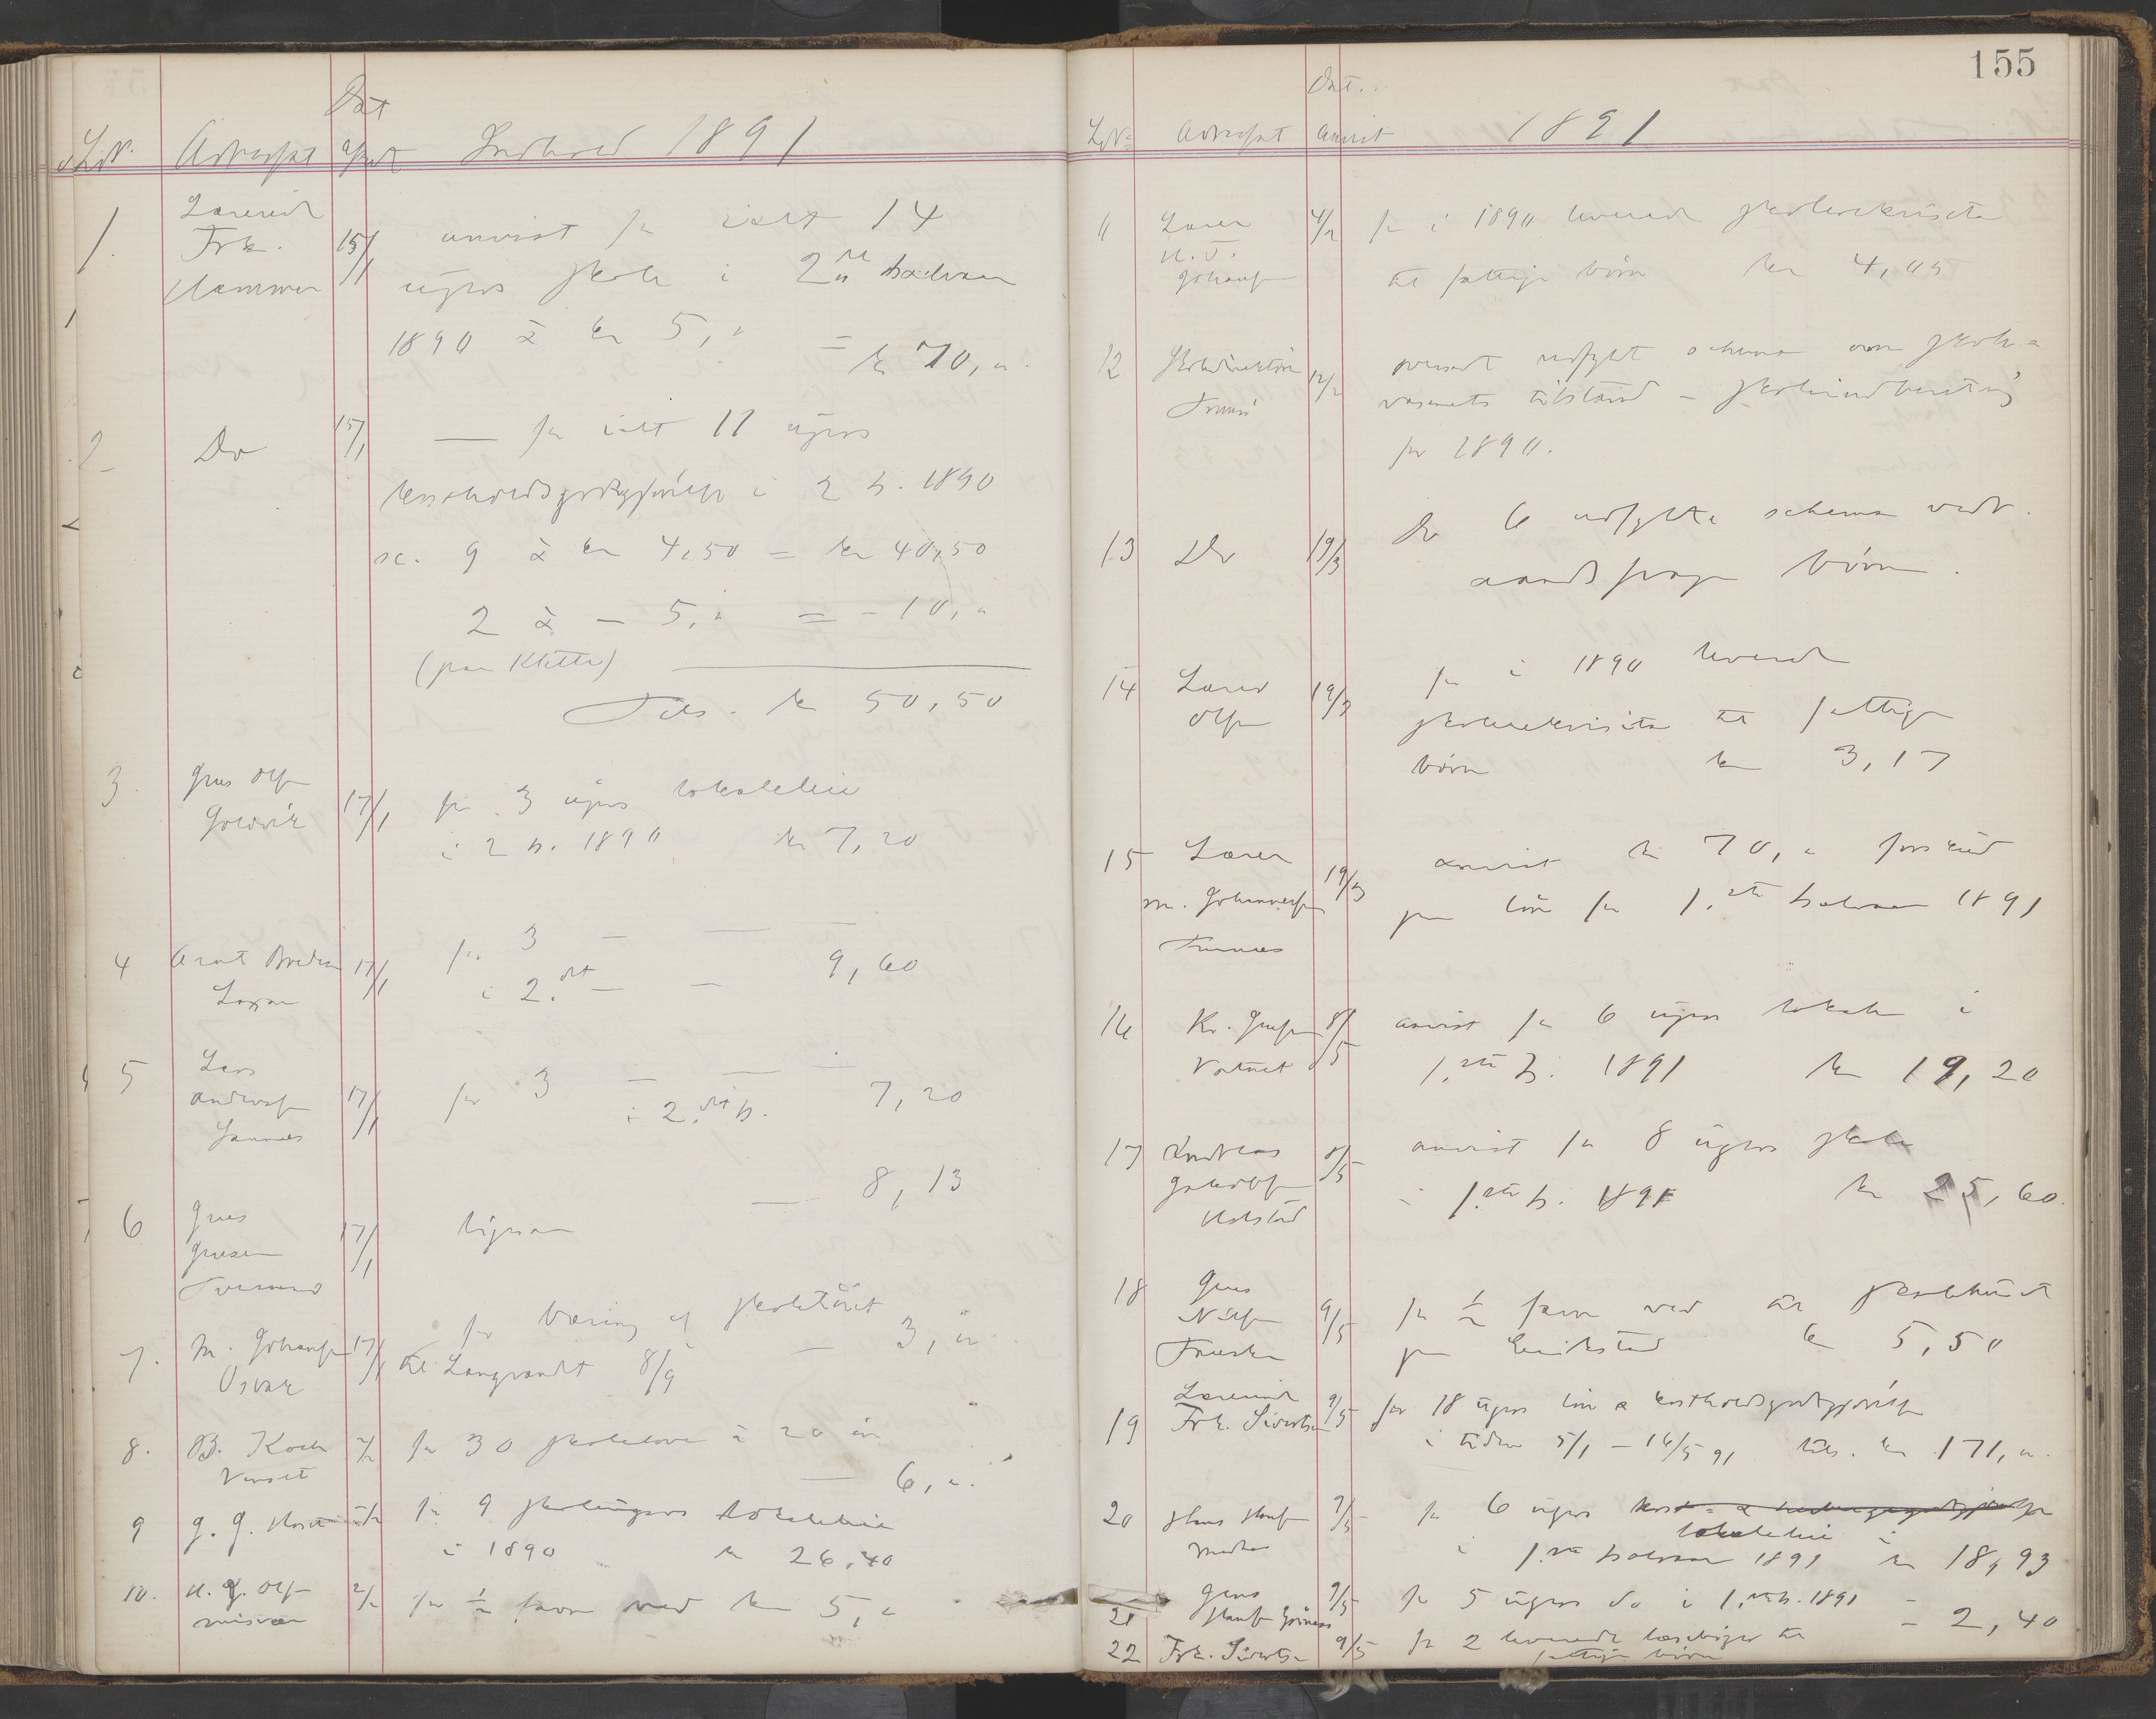 Dat
LNr. Adressat afsendt Indhold 1891
1. Lærerinde Frk. Hammer 15/1 anvist for ialt 14
ugers skole i 2det halvaar
1890 à kr 5,"
= kr 70,"
2 Do 15/1 — for ialt 11 ugers
kostholdsgodtgjørelse i 2 h. 1890
sc. 9 à kr 4,50 = kr 40,50
2 à — 5," = - 10,"
(paa Kletten)
Tils. kr 50,50
3. Jens Olsen 17/1 for 3 ugers lokaleleie
i 2 h. 1890 kr 7,20
4 Arnt 17/1 for 3 — — —
i 2.det — — 9,60
5 Lars Andreassen 17/1 for 3 — — —
i 2.det h. 7,20
6 Jens Jensen 17/1 ligesaa — 8,13
7. M. Johansen 17/1 for bæring af skoletøiet
til Langvandt 8/9 — 3,"
8. B. Koch 2/2 for 30 skolelove à 20 øre
— 6,"
9 J. J. for 9 skoleugers lokaleleie
i 1890 kr 26,40
10. H. J. Olsen Misvær 2/2 for ½ favn ved kr 5,"
155
Dat.
LNr. Adressat Anvist 1891
11 Lærer H. J. Johansen 4/2 for i 1890 leverede skolerekvisita
til fattige børn kr 4,05
12 Skoledirektøren Tromsø 12/2 oversendt udfyldt schema om skole=
væsenets tilstand – skoleindberetning
for 1890.
13 Do 19/3 Do 6 udfyldte schema vedr.
aandssvage børn.
14 Lærer Olsen 19/3 for i 1890 leverede
skolerekvisita til fattige
børn kr 3,17
15 Lærer M. Johannessen 19/3 anvist kr 70," forskud
paa løn for 1.ste halvaar 1891
16 Kr. Jensen Vatnet 8/5 anvist for 6 ugers lokale i
1.ste h. 1891 kr 19,20
17 Andreas Jakobsen 8/5 anvist for 8 ugers skole
i 1.ste h. 1891 kr 25,60
18 Jens Nilsen 9/5 for ½ favn ved til skolehuset
paa kr 5,50
19 Lærerinde Frk. Sivertsen 9/5 for 18 ugers løn & kostholdsgodtgjørelse
i tiden 5/1 – 16/5 91 tils. kr 171,"
20 Hans Hansen 9/5 for 6 ugers kost- &
lokaleleie
i 1.ste halvaar 1891 kr 18,93
21 Jens Hansen 9/5 for 5 ugers do i 1.ste h. 1891
= 2,40
22 Frk. Sivertsen 9/5 for 2 leverede læsebøger til
fattige børn